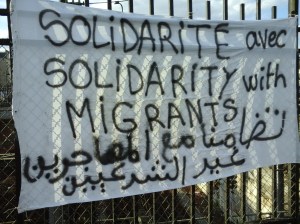 SOLIDARITÉ avec
SOLIDARITY with
MIGRANTS
تضامنا مع المهاجرين
غير الشرعيين